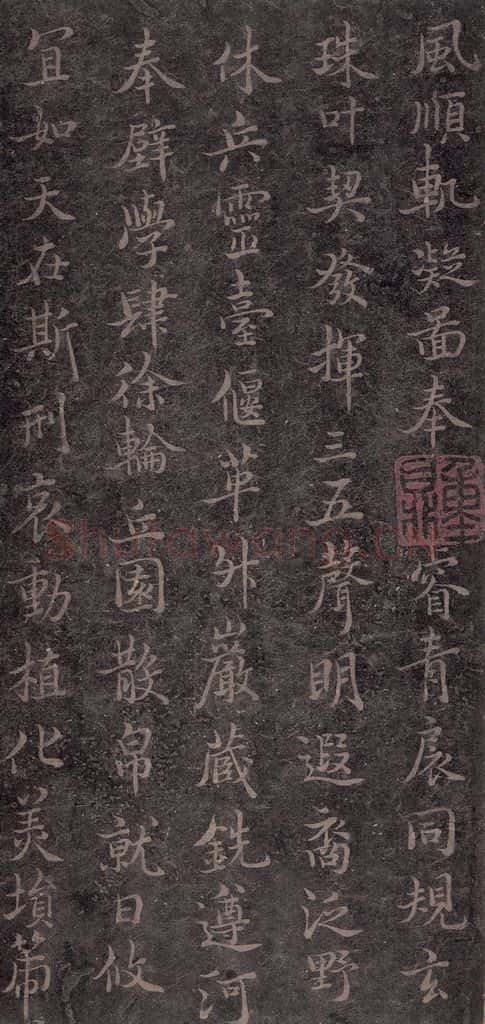 風順軌凝圖奉睿青扆同規玄
珠叶契發揮三五聲明遐裔泛野
休兵靈臺偃革升巖蔵銑遵河
奉璧學肆徐輪丘園散帛就日攸
宜如天在斯刑哀動植化羙墳箒